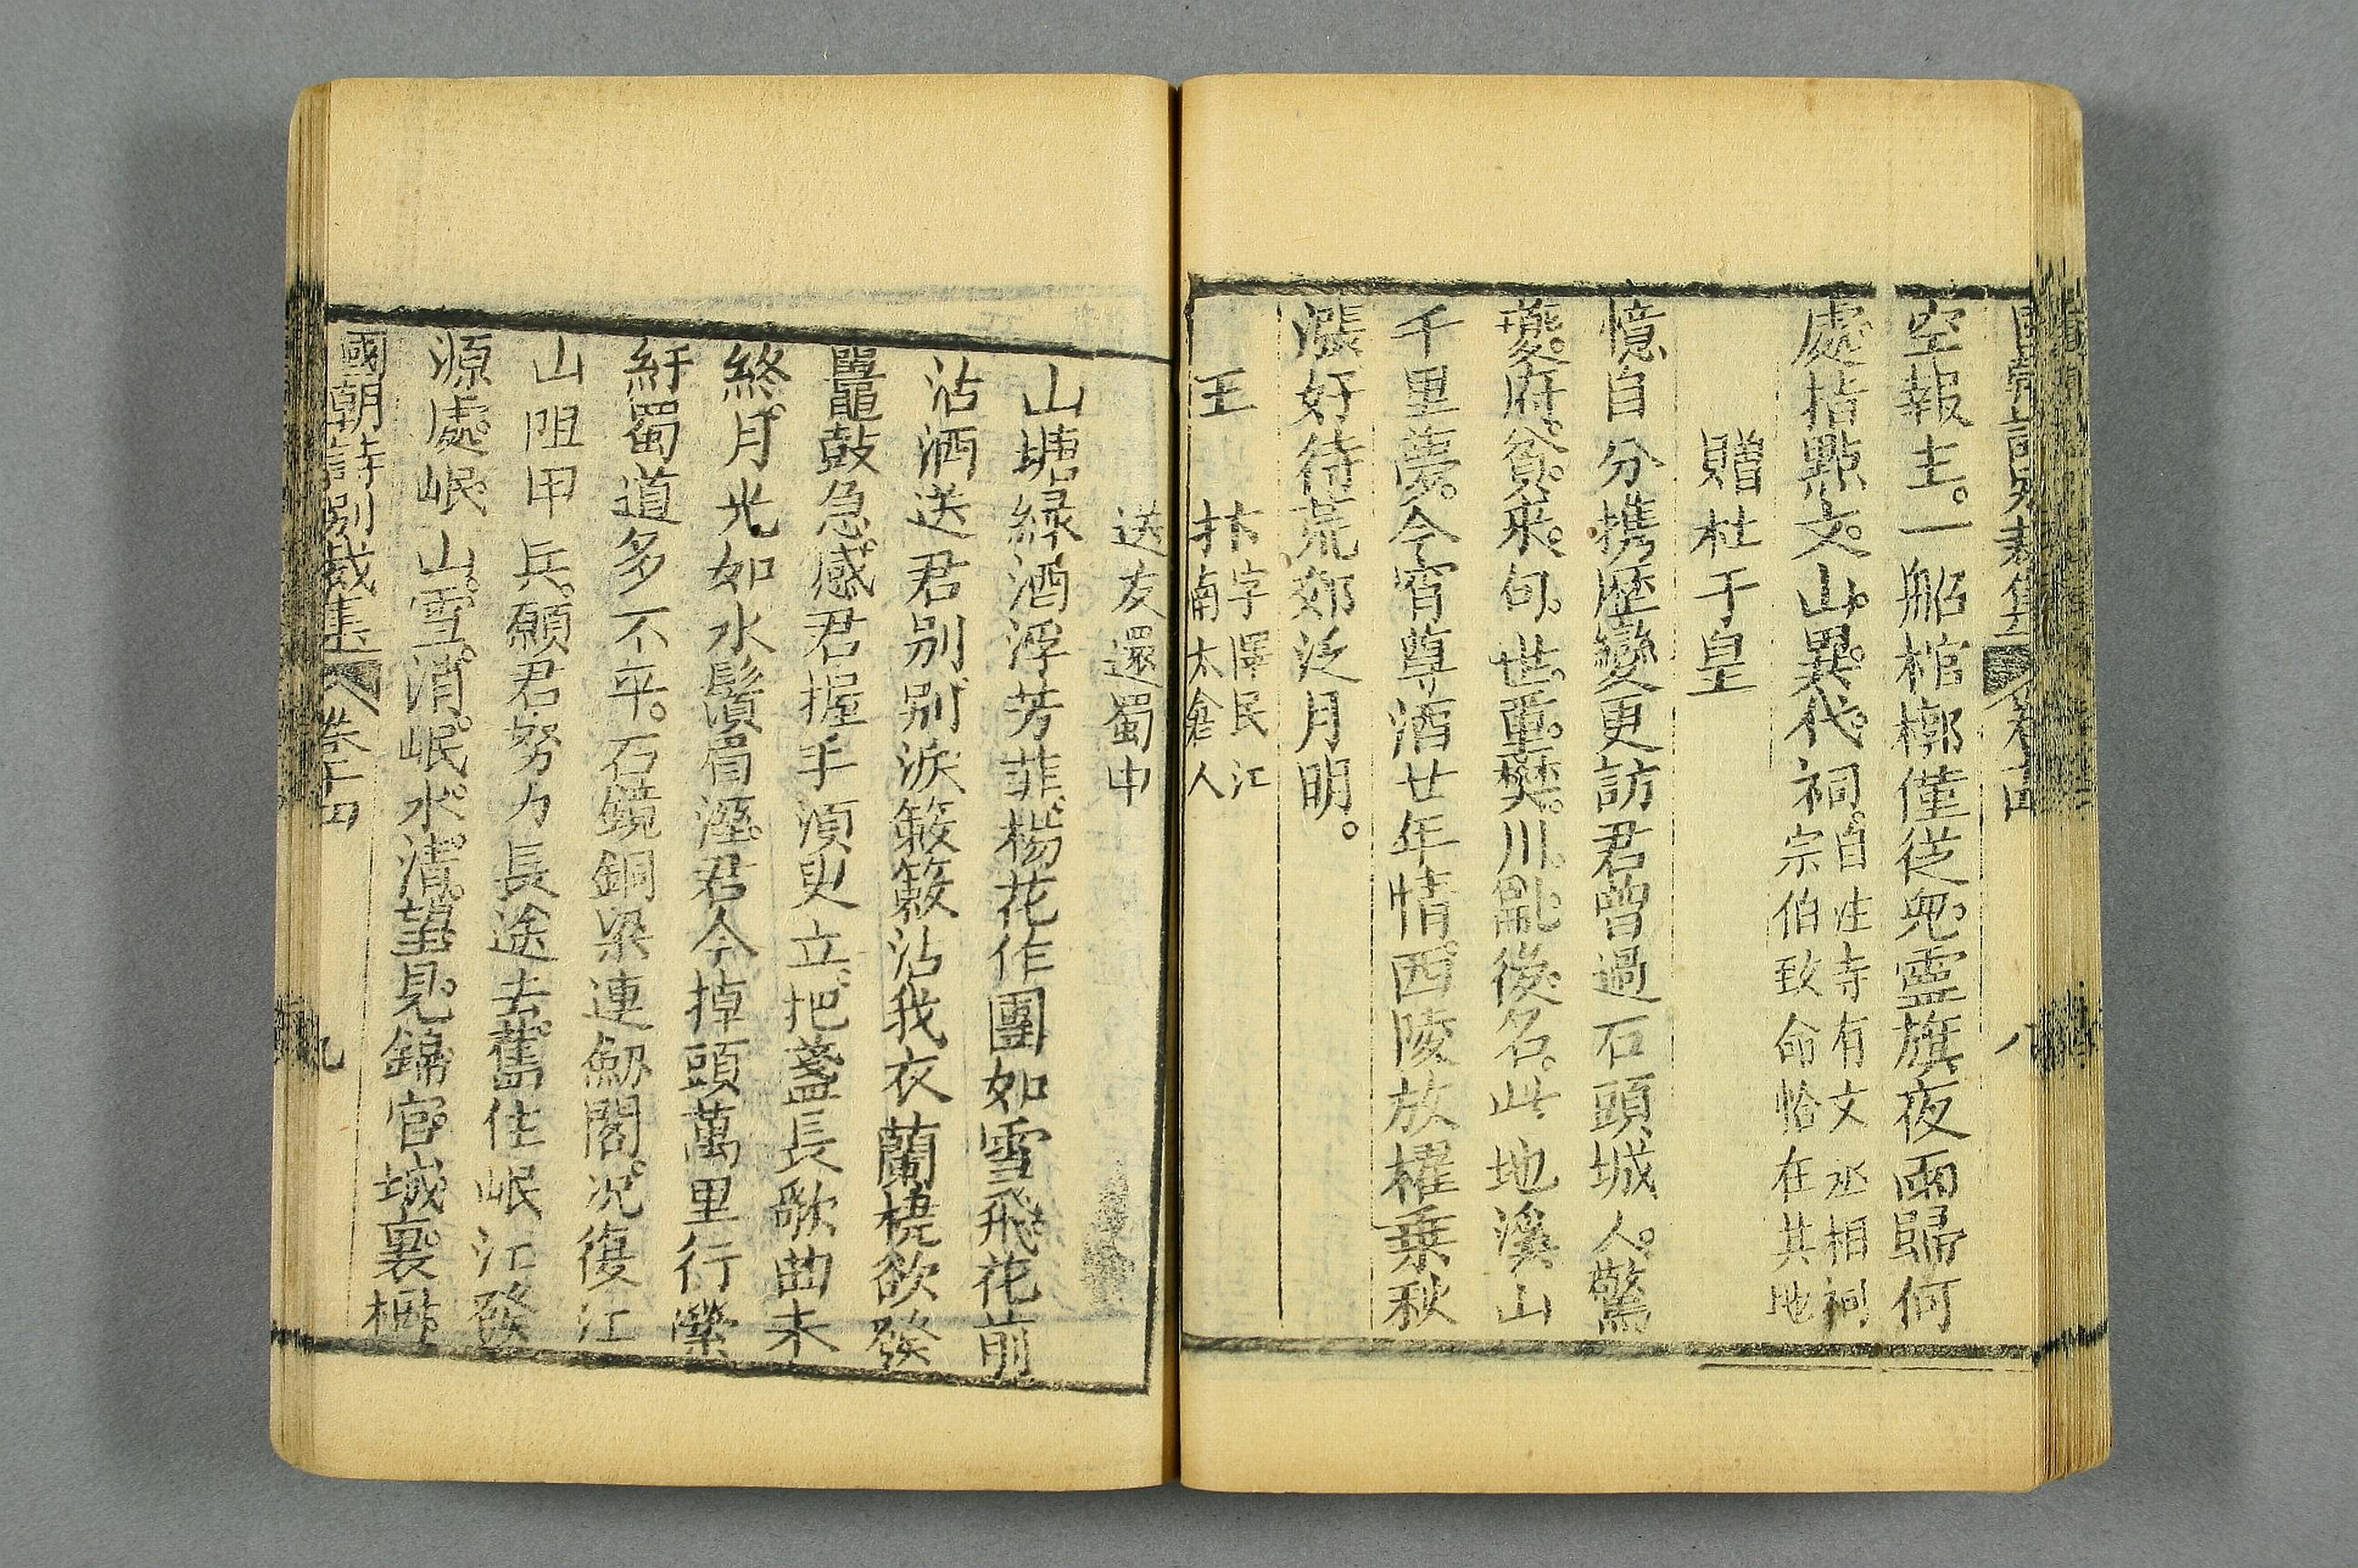 空報主。一船棺槨僅從兒靈旗夜雨歸何
處指點文山異代祠自注寺有文丞相祠
宗伯致命恰在其地
贈杜于皇
憶自分携歴變更訪君曾過石頭城人驚
夔府貧來句世重樊川亂後名此地溪山
千里夢今宵尊酒廿年情西陵放櫂乗秋
漲好待荒郊泛月明。
王
抃字懌民江
南太倉人
送友還蜀中
山塘緑酒浮芳菲楊花作團如雪飛花前
沾洒送君别别淚簌簌沾我衣蘭橈欲發
鼉鼓急感君握手須臾立把盞長歌曲未
終月光如水鬚眉溼君今掉頭萬里行縈
紆蜀道多不平。石鏡銅梁連劒閣况復江
山阻甲兵願君努力長途去舊住岷江發
源處岷山雪消岷水清望見錦官城裏樹
國朝詩别裁集 卷十四
九